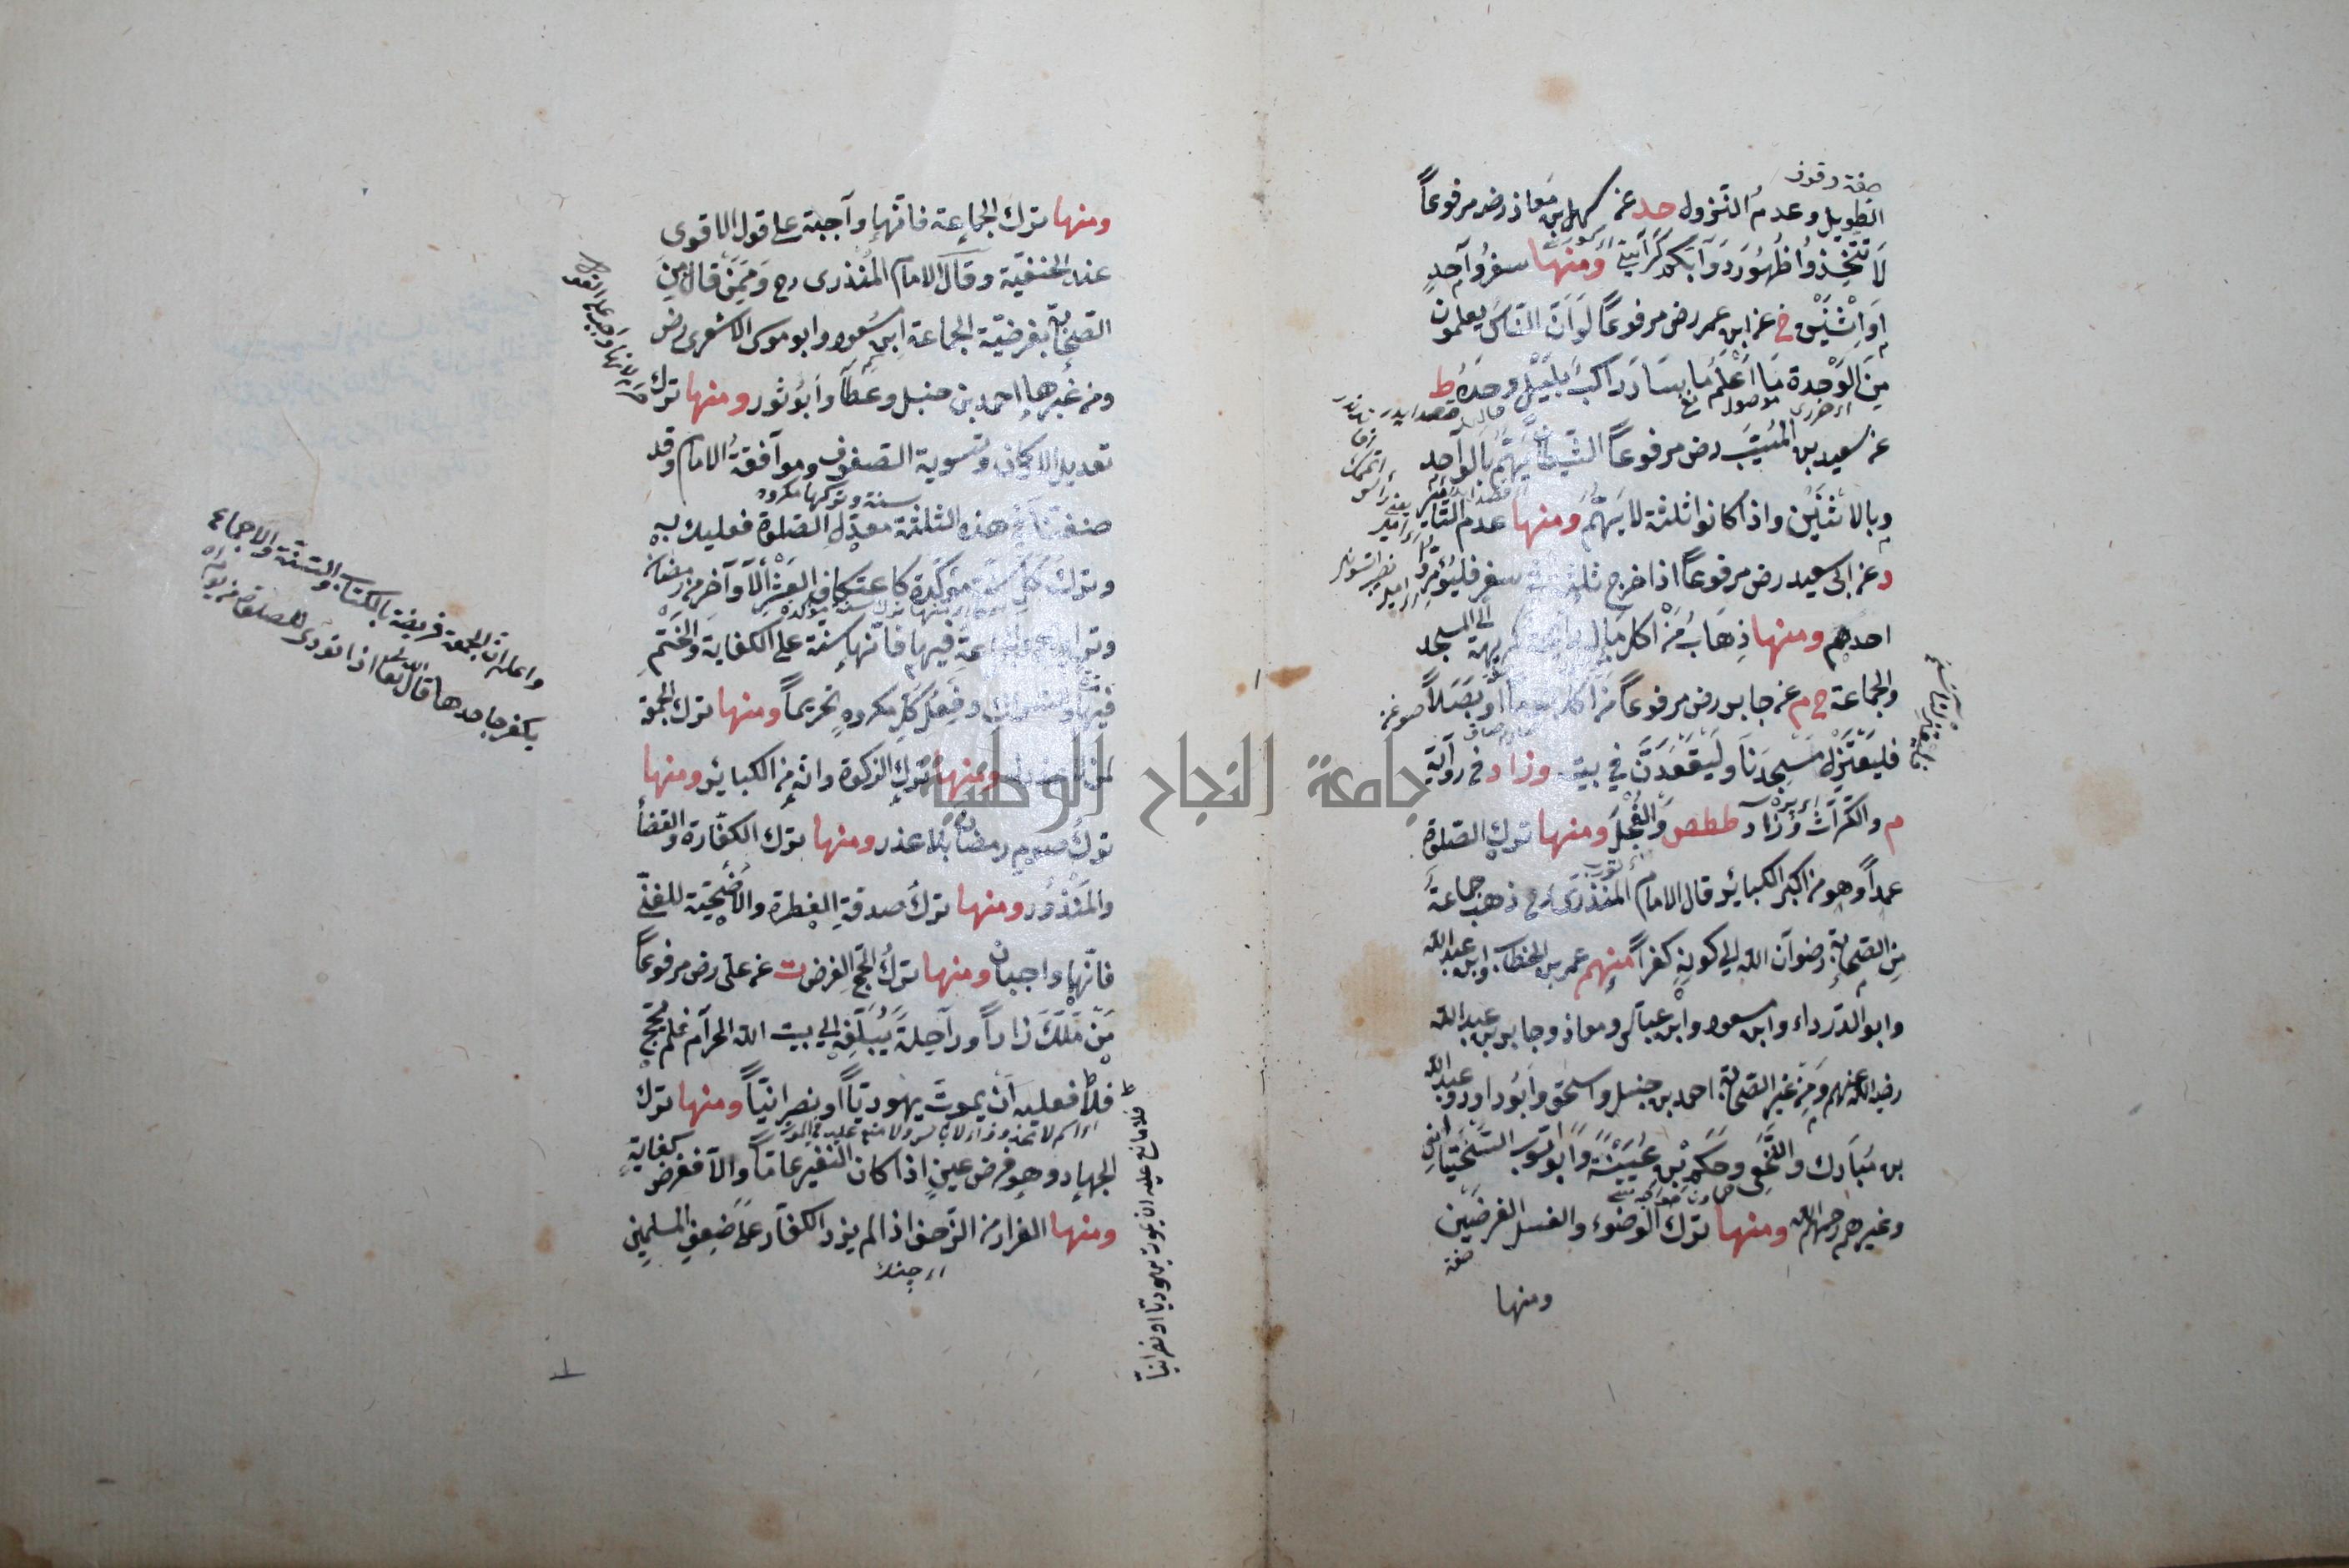 صفة وقوف
الطويل وعدم النزول حد عن سهل بن معاذ رض مرفوعاً
لا تتخذوا ظهور دوابكم كراسي ومنها سفر واحد
او اثنين خ عن ابن عمر رض مرفوعاً لو ان الناس يعلمون
من الوحدة ما اعلم ما سار راكب بليل وحده ط
عن سعيد بن المسيب رض مرفوعاً الشيطان يهم بالواحد
وبالاثنين واذا كانوا ثلثة لا يهم ومنها عدم التأمير
د عن ابى سعيد رض مرفوعاً اذا خرج ثلثة في سفر فليؤمروا
احدهم ومنها ذهاب من اكل ماله رايحة كريهة الى المسجد
والجماعة خ م عن جابر رض مرفوعاً من اكل ثوما او بصلاً
فليعتزل مسجدنا وليقعدن في بيته وزاد في رواية
م والكراث وزاد ططص والفجل ومنها ترك الصلوة
عمداً وهو من اكبر الكبائر قال الامام المنذرى رح ذهب جماعة
من الصحابة رضوان الله الى كونه كفراً منهم عمر بن الخطاب وابن عبد الله
وابو الدرداء وابن مسعود وابن عباس ومعاذ وجابر بن عبد الله
رضي الله عنهم ومن غير الصحابة احمد بن حنبل واسحق وابو داود وعبد الله
بن مبارك والنخعى وحكم بن عيينة وابو ايوب السختيانى
وغيرهم رحمهم الله ومنها ترك الوضوء والغسل الفرضين
ومنها
ومنها ترك الجماعة فانها واجبة على قول الاقوى
عند الحنفية وقال الامام المنذرى رح وممن قال من
الصحابة بفرضية الجماعة ابن مسعود وابو موسى الاشعرى رض
ومن غيرها احمد بن حنبل وعطا وابو ثور ومنها ترك
تعديل الاركان وتسوية الصفوف وموافقة الامام وقد
سنة وتركها مكروه
صنفنا في هذه الثلثة معدل الصلوة فعليك به
وترك كل سنة مؤكدة كاعتكاف العشر الاواخر من رمضان
وترك الجماعة فيها فانها سنة على الكفاية والختم
فيها والسواك وفعل كل مكروه تحريماً ومنها ترك الجمعة
لمن ومنها ترك الزكوة وانه من الكبائر ومنها
ترك صوم رمضان بلا عذر ومنها ترك الكفارة والقضأ
والمنذور ومنها ترك صدقة الفطرة والاضحية للغنى
فانها واجبان ومنها ترك الحج الفرض ت عن على رض مرفوعاً
من ملك زاداً وراحلة يبلغه الى بيت الله الحرام فلم يحج
فلا فعليه ان يموت يهودياً او نصرانياً ومنها ترك
الجهاد وهو فرض عين اذا كان النفير عاماً والا ففرض كفاية
ومنها الفرار من الزحف اذا لم يزد الكفار على ضعف المسلمين
اى جنك
واعلم ان الجمعة فريضة بالكتاب والسنة والاجماع
يكفر جاحدها قال الله تعا اذا نودى للصلوة من يوم
فلا مانع عليه ان يموت يهوديا او نصرانيا
جامعة النجاح الوطنية